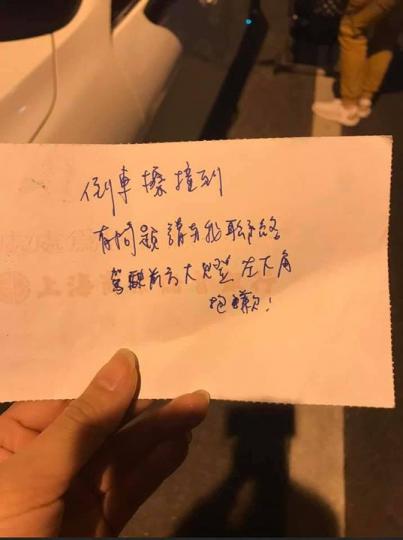 倒車擦撞到
有問題請與我聯絡
駕駛前方大燈 左下角
抱歉!